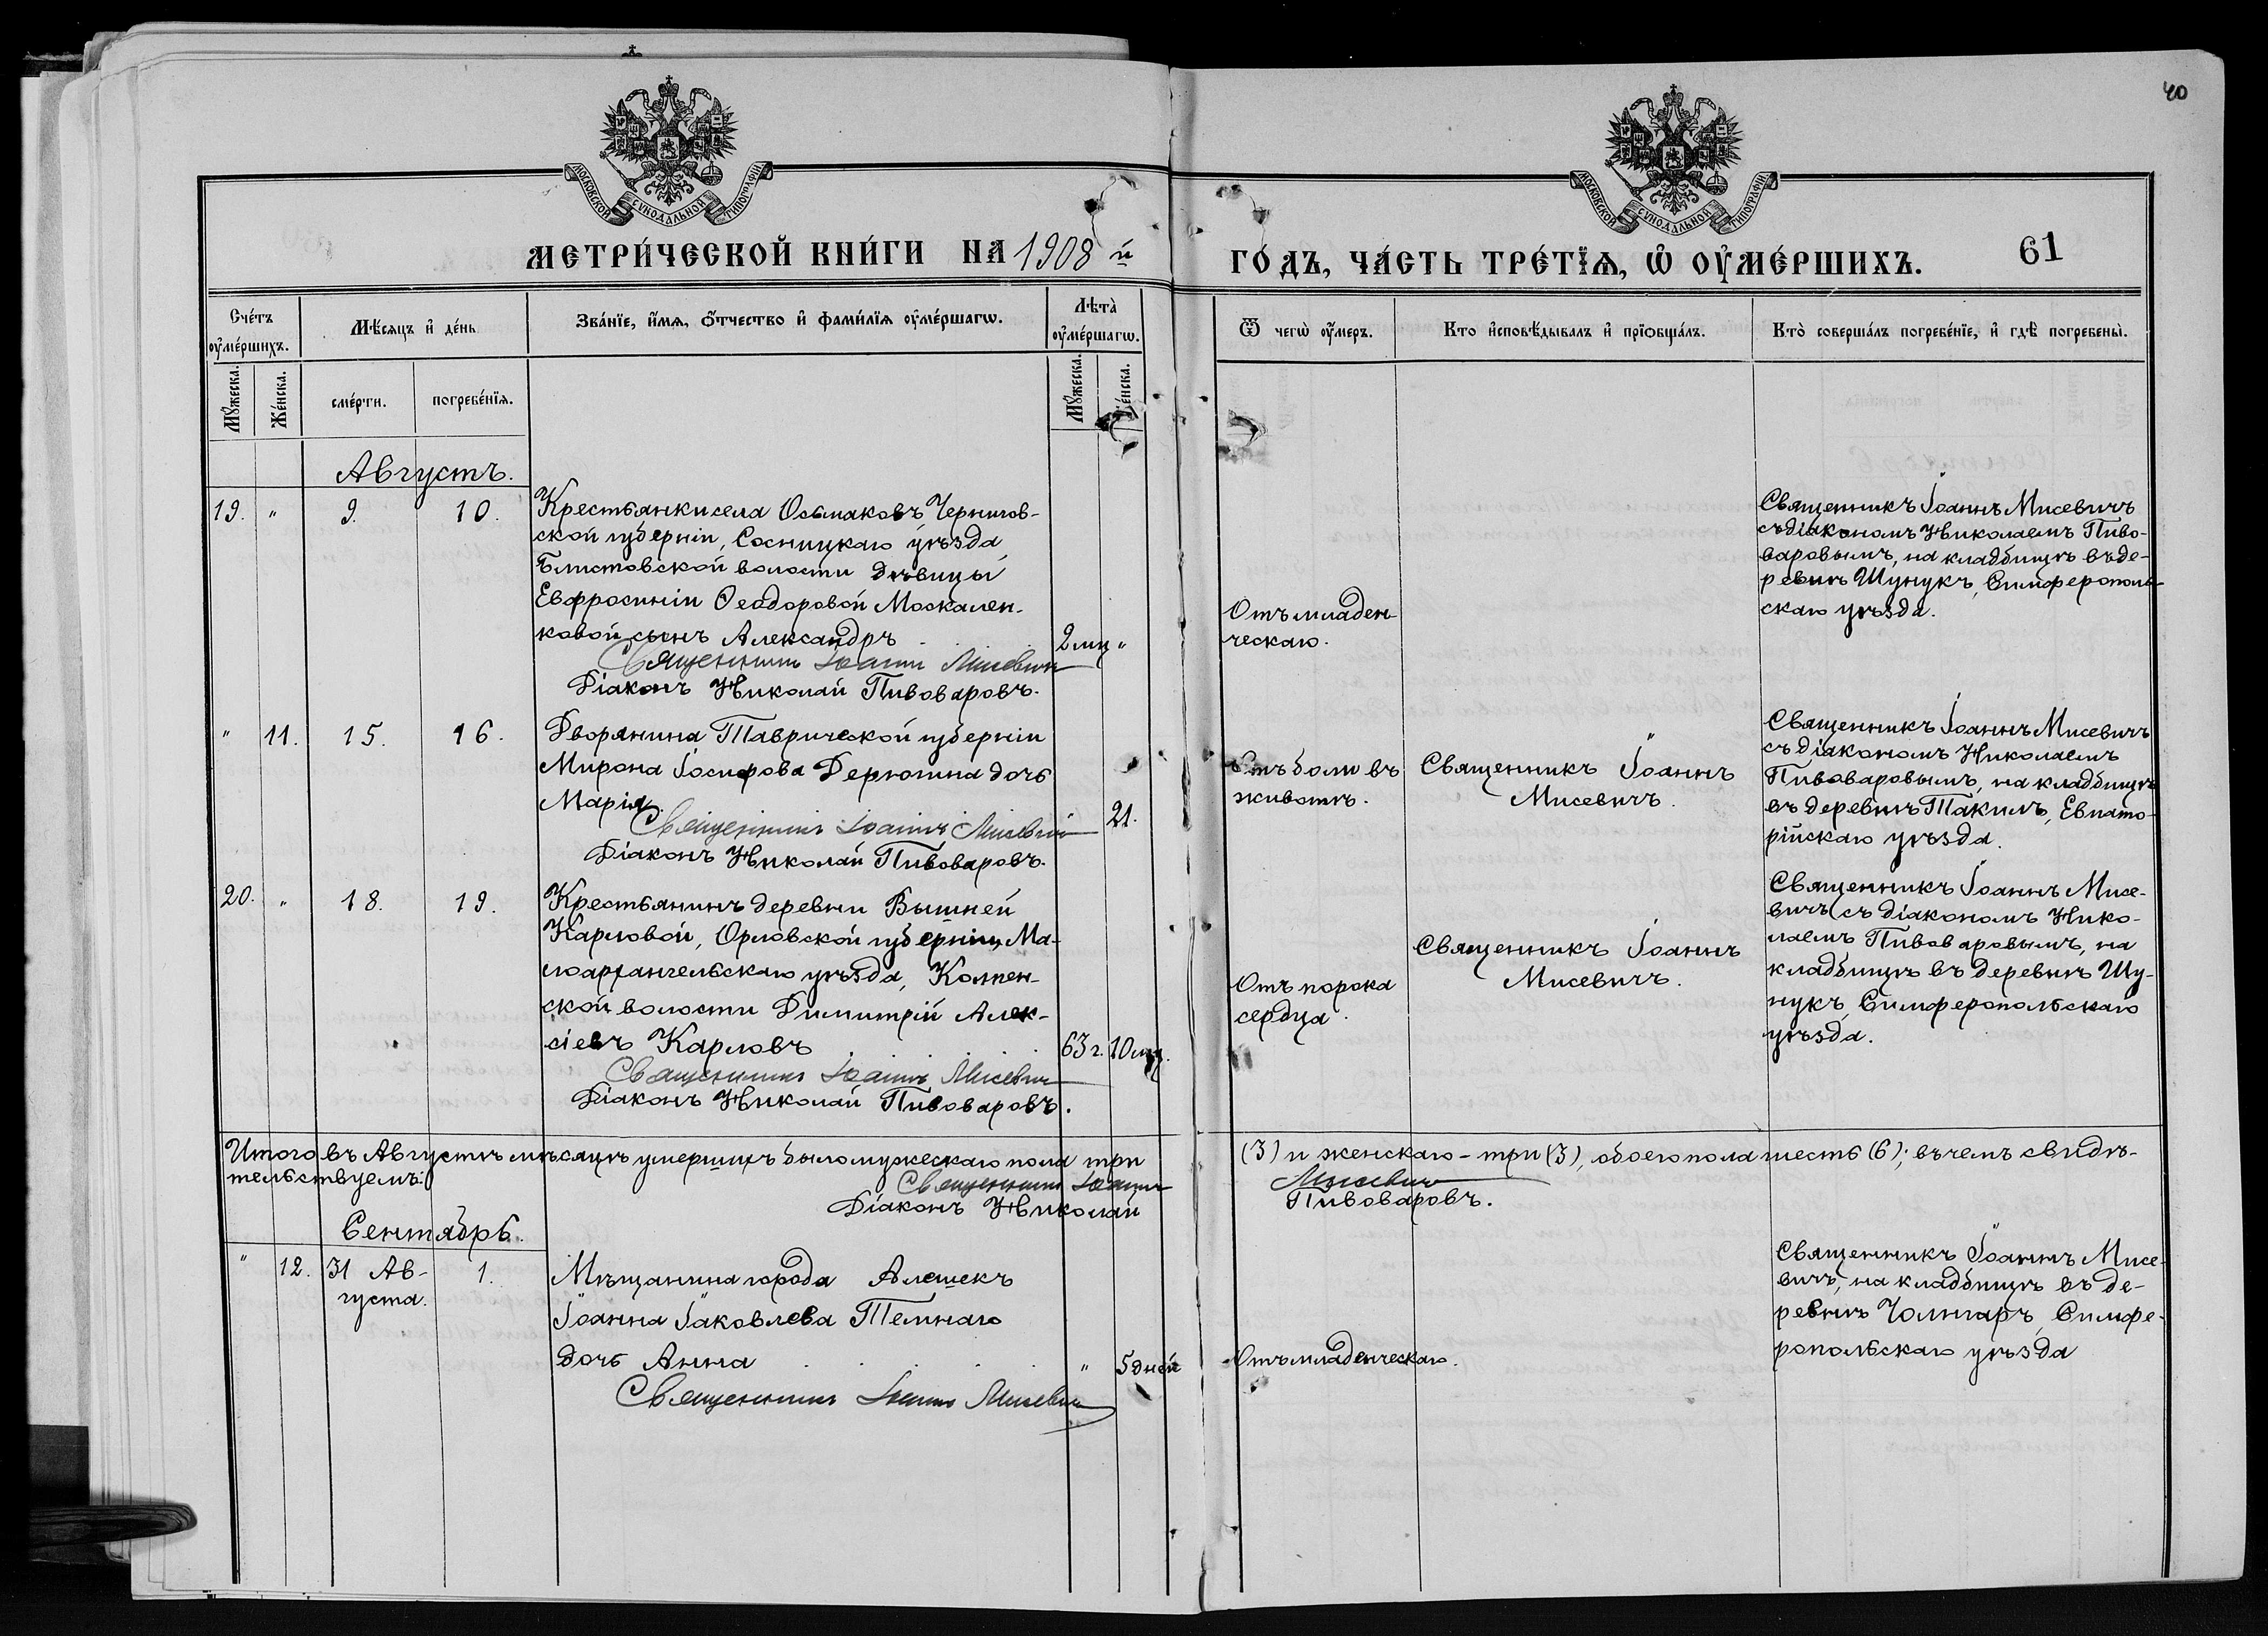 40
МОСКОВСКОЙ СѴНОДАЛЬНОЙ ТИПОГРАФІИ
МОСКОВСКОЙ СѴНОДАЛЬНОЙ ТИПОГРАФІИ
МЕТРИ́ЧЕСКОЙ КНИ́ГИ НА 1908 й
ГО́ДЪ, ЧА́СТЬ ТРЕ́ТЇѦ, Ѡ҆ ОУ҆МЕ́РШИХЪ.
61
Сче́тъ оу҆ме́ршихъ.
Мѣ́сѧцъ и҆ де́нь
Зва́нїе, и҆́мѧ, ѻ҆́тчество и҆ фами́лїѧ оу҆ме́ршагѡ.
Лѣта̀ оу҆ме́ршагѡ.
Ѿ чегѡ̀ оу҆́меръ.
Кто̀ и҆сповѣ́дывалъ и҆ прїѡбща́лъ.
Кто̀ соверша́лъ погребе́нїе, и҆ гдѣ̀ погребены̀.
Мꙋ́жеска.
Же́нска.
сме́рти.
погребе́нїѧ.
Мꙋ́жеска.
Же́нска.
Августъ.
19. " 9. 10.
Крестьянки села Осьмаковъ Чернигов-
ской губерніи, Сосницкаго уѣзда
Блистовской волости дѣвицы
Евфросиніи Ѳеодоровой Москален-
ковой сынъ Александръ 2 мц "
Священникъ Іоаннъ Мисевичъ
Діаконъ Николай Пивоваровъ.
Отъ младен-
ческаго.
Священникъ Іоаннъ Мисевичъ
съ діакономъ Николаемъ Пиво-
варовымъ, на кладбищѣ въ де-
ревнѣ Шунукъ, Симферополь-
скаго уѣзда.
" 11. 15. 16.
Дворянина Таврической губерніи
Мирона Іосифова Дерюгина дочь
Марія. 21.
Священникъ Іоаннъ Мисевичъ
Діаконъ Николай Пивоваровъ.
Отъ боли въ
животѣ.
Священникъ Іоаннъ
Мисевичъ.
Священникъ Іоаннъ Мисевичъ
съ діакономъ Николаемъ
Пивоваровымъ, на кладбищѣ
въ деревнѣ Такилъ, Евпато-
рійскаго уѣзда.
20. " 18. 19.
Крестьянинъ деревни Вышней
Карловой, Орловской губерніи, Ма-
лоархангельскаго уѣзда, Колпен-
ской волости Димитрій Алек-
сіевъ Карловъ 63 г. 10 мц.
Священникъ Іоаннъ Мисевичъ
Діаконъ Николай Пивоваровъ.
Отъ порока
сердца.
Священникъ Іоаннъ
Мисевичъ.
Священникъ Іоаннъ Мисе-
вичъ съ діакономъ Нико-
лаемъ Пивоваровымъ, на
кладбищѣ въ деревнѣ Шу-
нукъ, Симферопольскаго
уѣзда.
Итого въ Августѣ мѣсяцѣ умершихъ было мужескаго пола три (3) и женскаго - три (3), обоего пола шесть (6); въ чемъ свидѣ-
тельствуемъ:
Священникъ Іоаннъ Мисевичъ
Діаконъ Николай Пивоваровъ.
Сентябрь.
" 12. 31 Ав- 1.
густа.
Мѣщанина города Алешекъ
Іоанна Іаковлева Темнаго
дочь Анна " 5 дней
Священникъ Іоаннъ Мисевичъ
Отъ младенческаго.
Священникъ Іоаннъ Мисе-
вичъ, на кладбищѣ въ де-
ревнѣ Чонгаръ, Симфе-
ропольскаго уѣзда